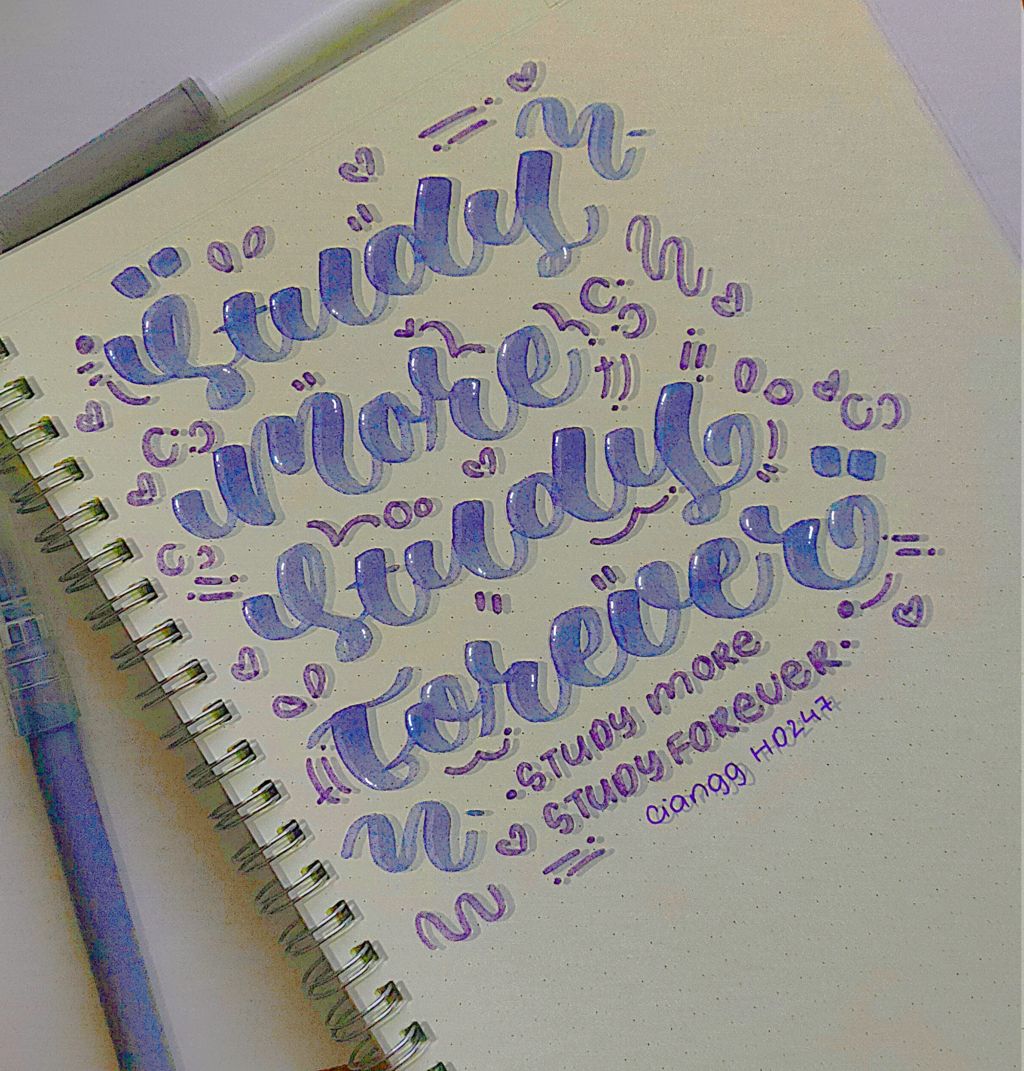 Study
more
Study
Forever
STUDY MORE
STUDY FOREVER.
ciangg H0247